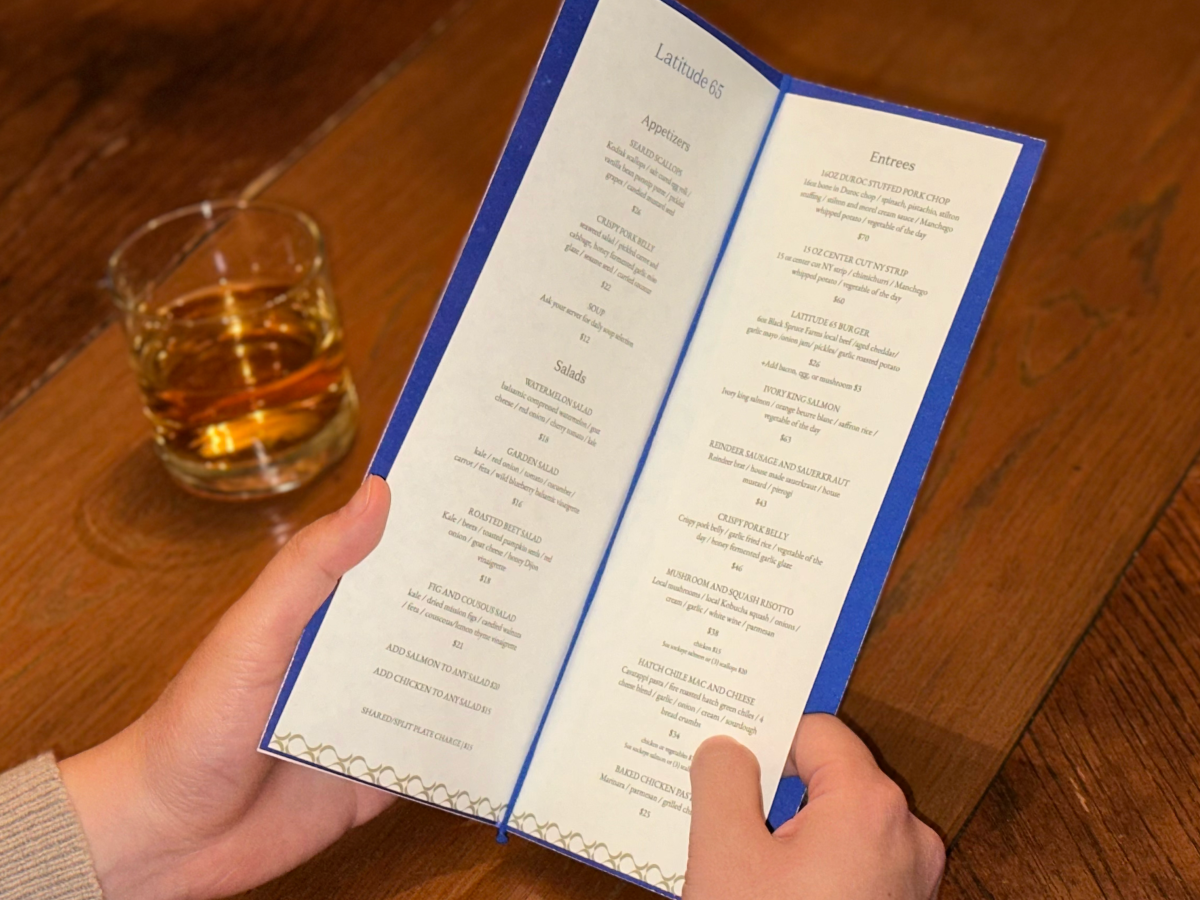 Latitude 65
Appetizers
SEARED SCALLOPS
Kodiak scallops / salt cured egg yolk /
vanilla bean parsnip puree / pickled
grapes / candied mustard seed
$26
CRISPY PORK BELLY
seaweed salad / pickled carrot and
cabbage, honey fermented garlic miso
glaze / sesame seed / curried coconut
$22
SOUP
Ask your server for daily soup selection
$12
Salads
WATERMELON SALAD
balsamic compressed watermelon / goat
cheese / red onion / cherry tomato / kale
$18
GARDEN SALAD
kale / red onion / tomato / cucumber /
carrot / feta / wild blueberry balsamic vinaigrette
$16
ROASTED BEET SALAD
Kale / beets / toasted pumpkin seeds / red
onion / goat cheese / honey Dijon
vinaigrette
$18
FIG AND COUSOUS SALAD
kale / dried mission figs / candied walnuts
/ feta / couscous/lemon thyme vinaigrette
$21
ADD SALMON TO ANY SALAD $20
ADD CHICKEN TO ANY SALAD $15
SHARED/SPLIT PLATE CHARGE | $15
Entrees
16OZ DUROC STUFFED PORK CHOP
16oz bone in Duroc chop / spinach, pistachio, stilton
stuffing / stilton and morel cream sauce / Manchego
whipped potato / vegetable of the day
$70
15 OZ CENTER CUT NY STRIP
15 oz center cut NY strip / chimichurri / Manchego
whipped potato / vegetable of the day
$60
LATITUDE 65 BURGER
6oz Black Spruce Farms local beef /aged cheddar/
garlic mayo /onion jam/ pickles/ garlic roasted potato
$26
+Add bacon, egg, or mushroom $3
IVORY KING SALMON
Ivory king salmon / orange beurre blanc / saffron rice /
vegetable of the day
$63
REINDEER SAUSAGE AND SAUERKRAUT
Reindeer brat / house made sauerkraut / house
mustard / pierogi
$43
CRISPY PORK BELLY
Crispy pork belly / garlic fried rice / vegetable of the
day / honey fermented garlic glaze
$46
MUSHROOM AND SQUASH RISOTTO
Local mushrooms / local Kobucha squash / onions /
cream / garlic / white wine / parmesan
$38
chicken $15
5oz sockeye salmon or (3) scallops $20
HATCH CHILE MAC AND CHEESE
Cavatappi pasta / fire roasted hatch green chiles / 4
cheese blend / garlic / onion / cream / sourdough
bread crumbs
$34
chicken or vegetables
5oz sockeye salmon or (3)
BAKED CHICKEN PAS
Marinara / parmesan / grilled
$25